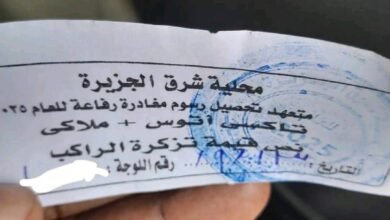 محلية شرق الجزيرة
متعهد تحصيل رسوم مغادرة رفاعة للعام ٢٠٢٥
تاكسى أتوس + ملاكى
نص قيمة تزكرة الراكب
التاريخ رقم اللوحة